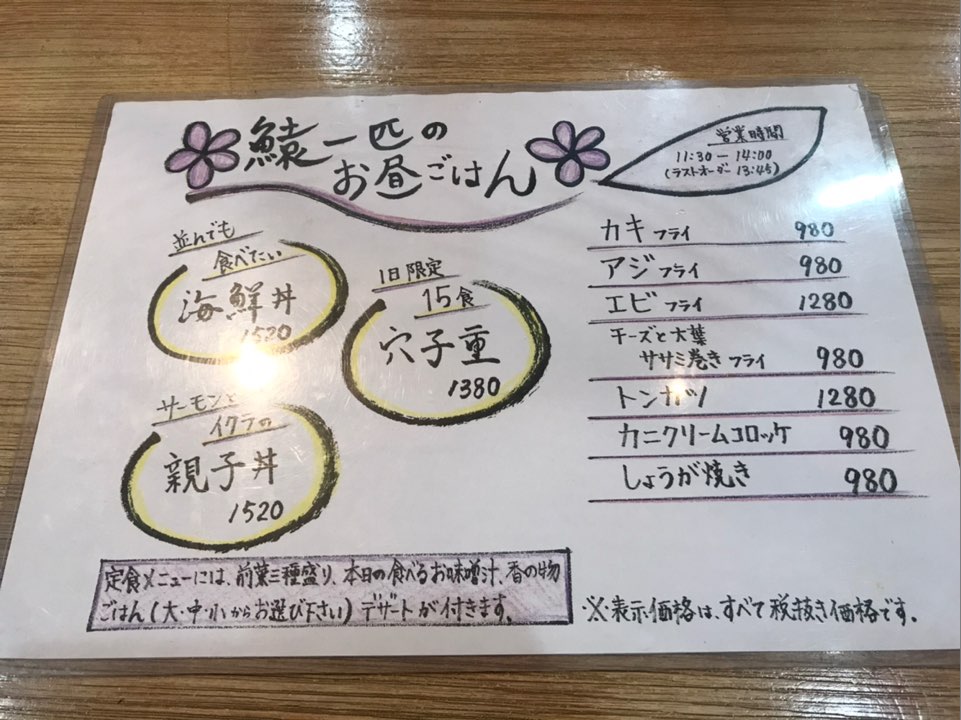 鱻一匹の
お昼ごはん
営業時間
11:30－14:00
(ラストオーダー 13:45)
並んでも
食べたい
海鮮丼
1520
1日限定
15食
穴子重
1380
サーモンと
イクラの
親子丼
1520
カキフライ 980
アジフライ 980
エビフライ 1280
チーズと大葉
ササミ巻きフライ 980
トンカツ 1280
カニクリームコロッケ 980
しょうが焼き 980
定食メニューには、前菜三種盛り、本日の食べるお味噌汁、香の物
ごはん(大・中・小からお選び下さい)デザートが付きます。
※表示価格は、すべて税抜き価格です。